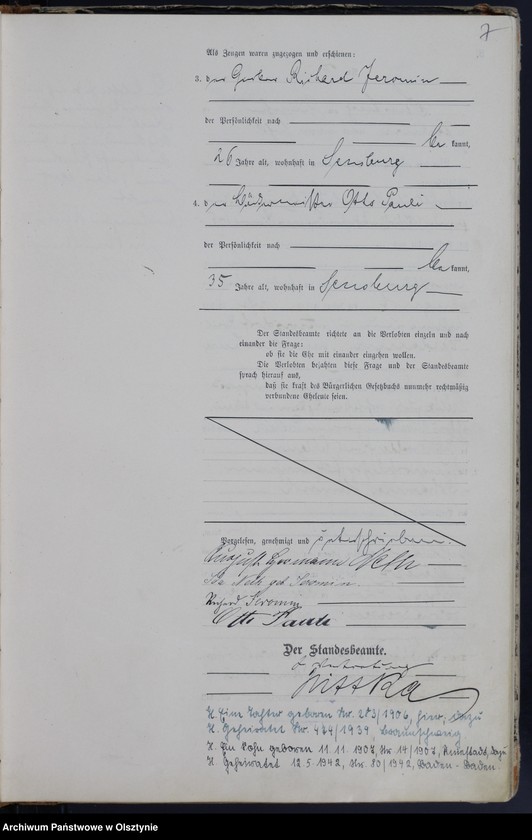 7
Als Zeugen waren zugezogen und erschienen:
3. der Richard Jeromin
der Persönlichkeit nach
be kannt,
26 Jahre alt, wohnhaft in Sensburg
4. der Otto Pauli
der Persönlichkeit nach
be kannt,
35 Jahre alt, wohnhaft in Sensburg
Der Standesbeamte richtete an die Verlobten einzeln und nach
einander die Frage:
ob sie die Ehe mit einander eingehen wollen.
Die Verlobten bejahten diese Frage und der Standesbeamte
sprach hierauf aus,
daß sie kraft des Bürgerlichen Gesetzbuchs nunmehr rechtmäßig
verbundene Eheleute seien.
Vorgelesen, genehmigt und unterschrieben.
August Hermann
geb. Jeromin
Richard Jeromin
Otto Pauli
Der Standesbeamte.
In Vertretung
Eine Tochter geboren Nr. 283/1906, hier, dazu
Geheiratet Nr. 434/1934, Braunschweig
Ein Sohn geboren 11.11.1907, Nr. 14/1907, dazu
Geheiratet 12.5.1942, Nr. 80/1942, Baden-Baden.
Archiwum Państwowe w Olsztynie